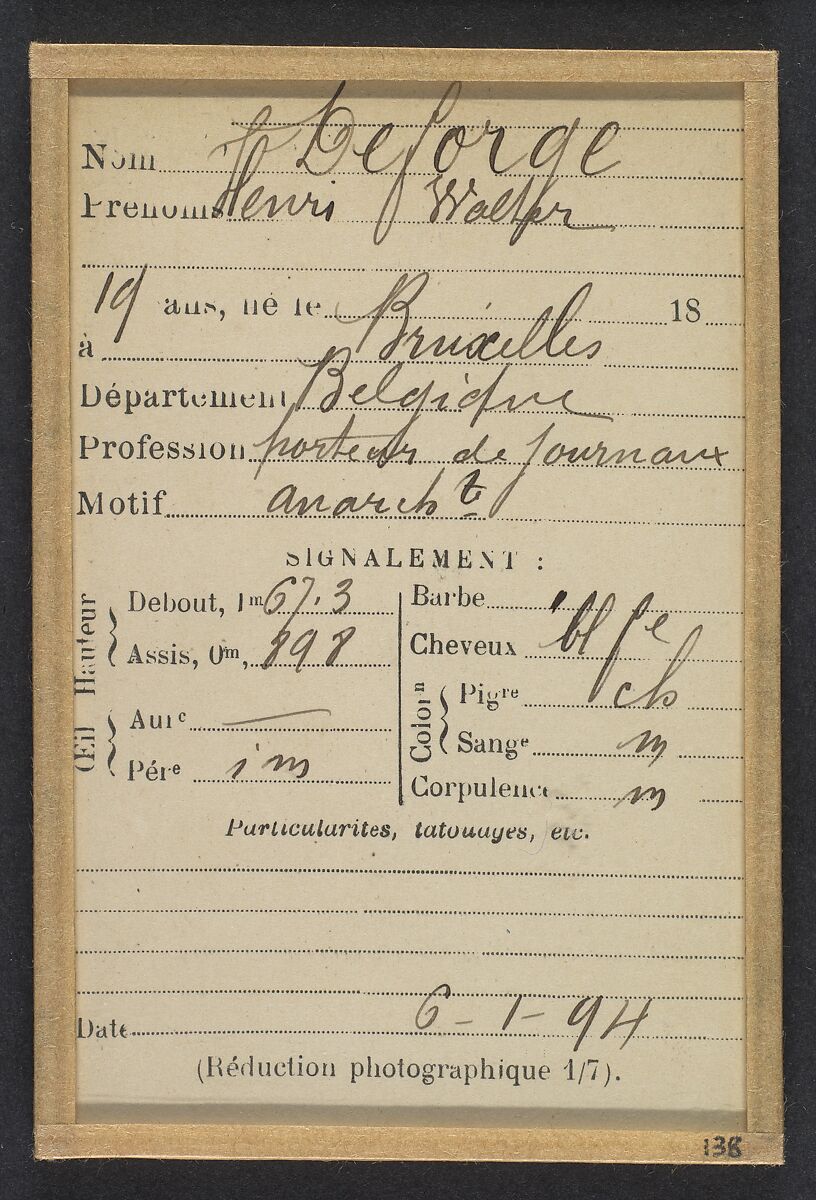 Nom Deforge
Prénoms Henri Walter
19 ans, né le 18
à Bruxelles
Département Belgique
Profession porteur de journaux
Motif anarchte
SIGNALEMENT :
Hauteur
Debout, 1m 67.3
Assis, 0m, 898
Œil
Aurc —
Pére i m
Barbe
Cheveux bl fe
Colorn
Pigre ch
Sange m
Corpulence m
Particularités, tatouages, etc.
Date 6 - 1 - 94
(Réduction photographique 1/7).
136